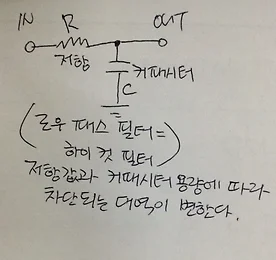 IN R OUT
저항
커패시터
C
(로우 패스 필터=
하이 컷 필터)
저항값과 커패시터 용량에 따라
차단되는 대역이 변한다.